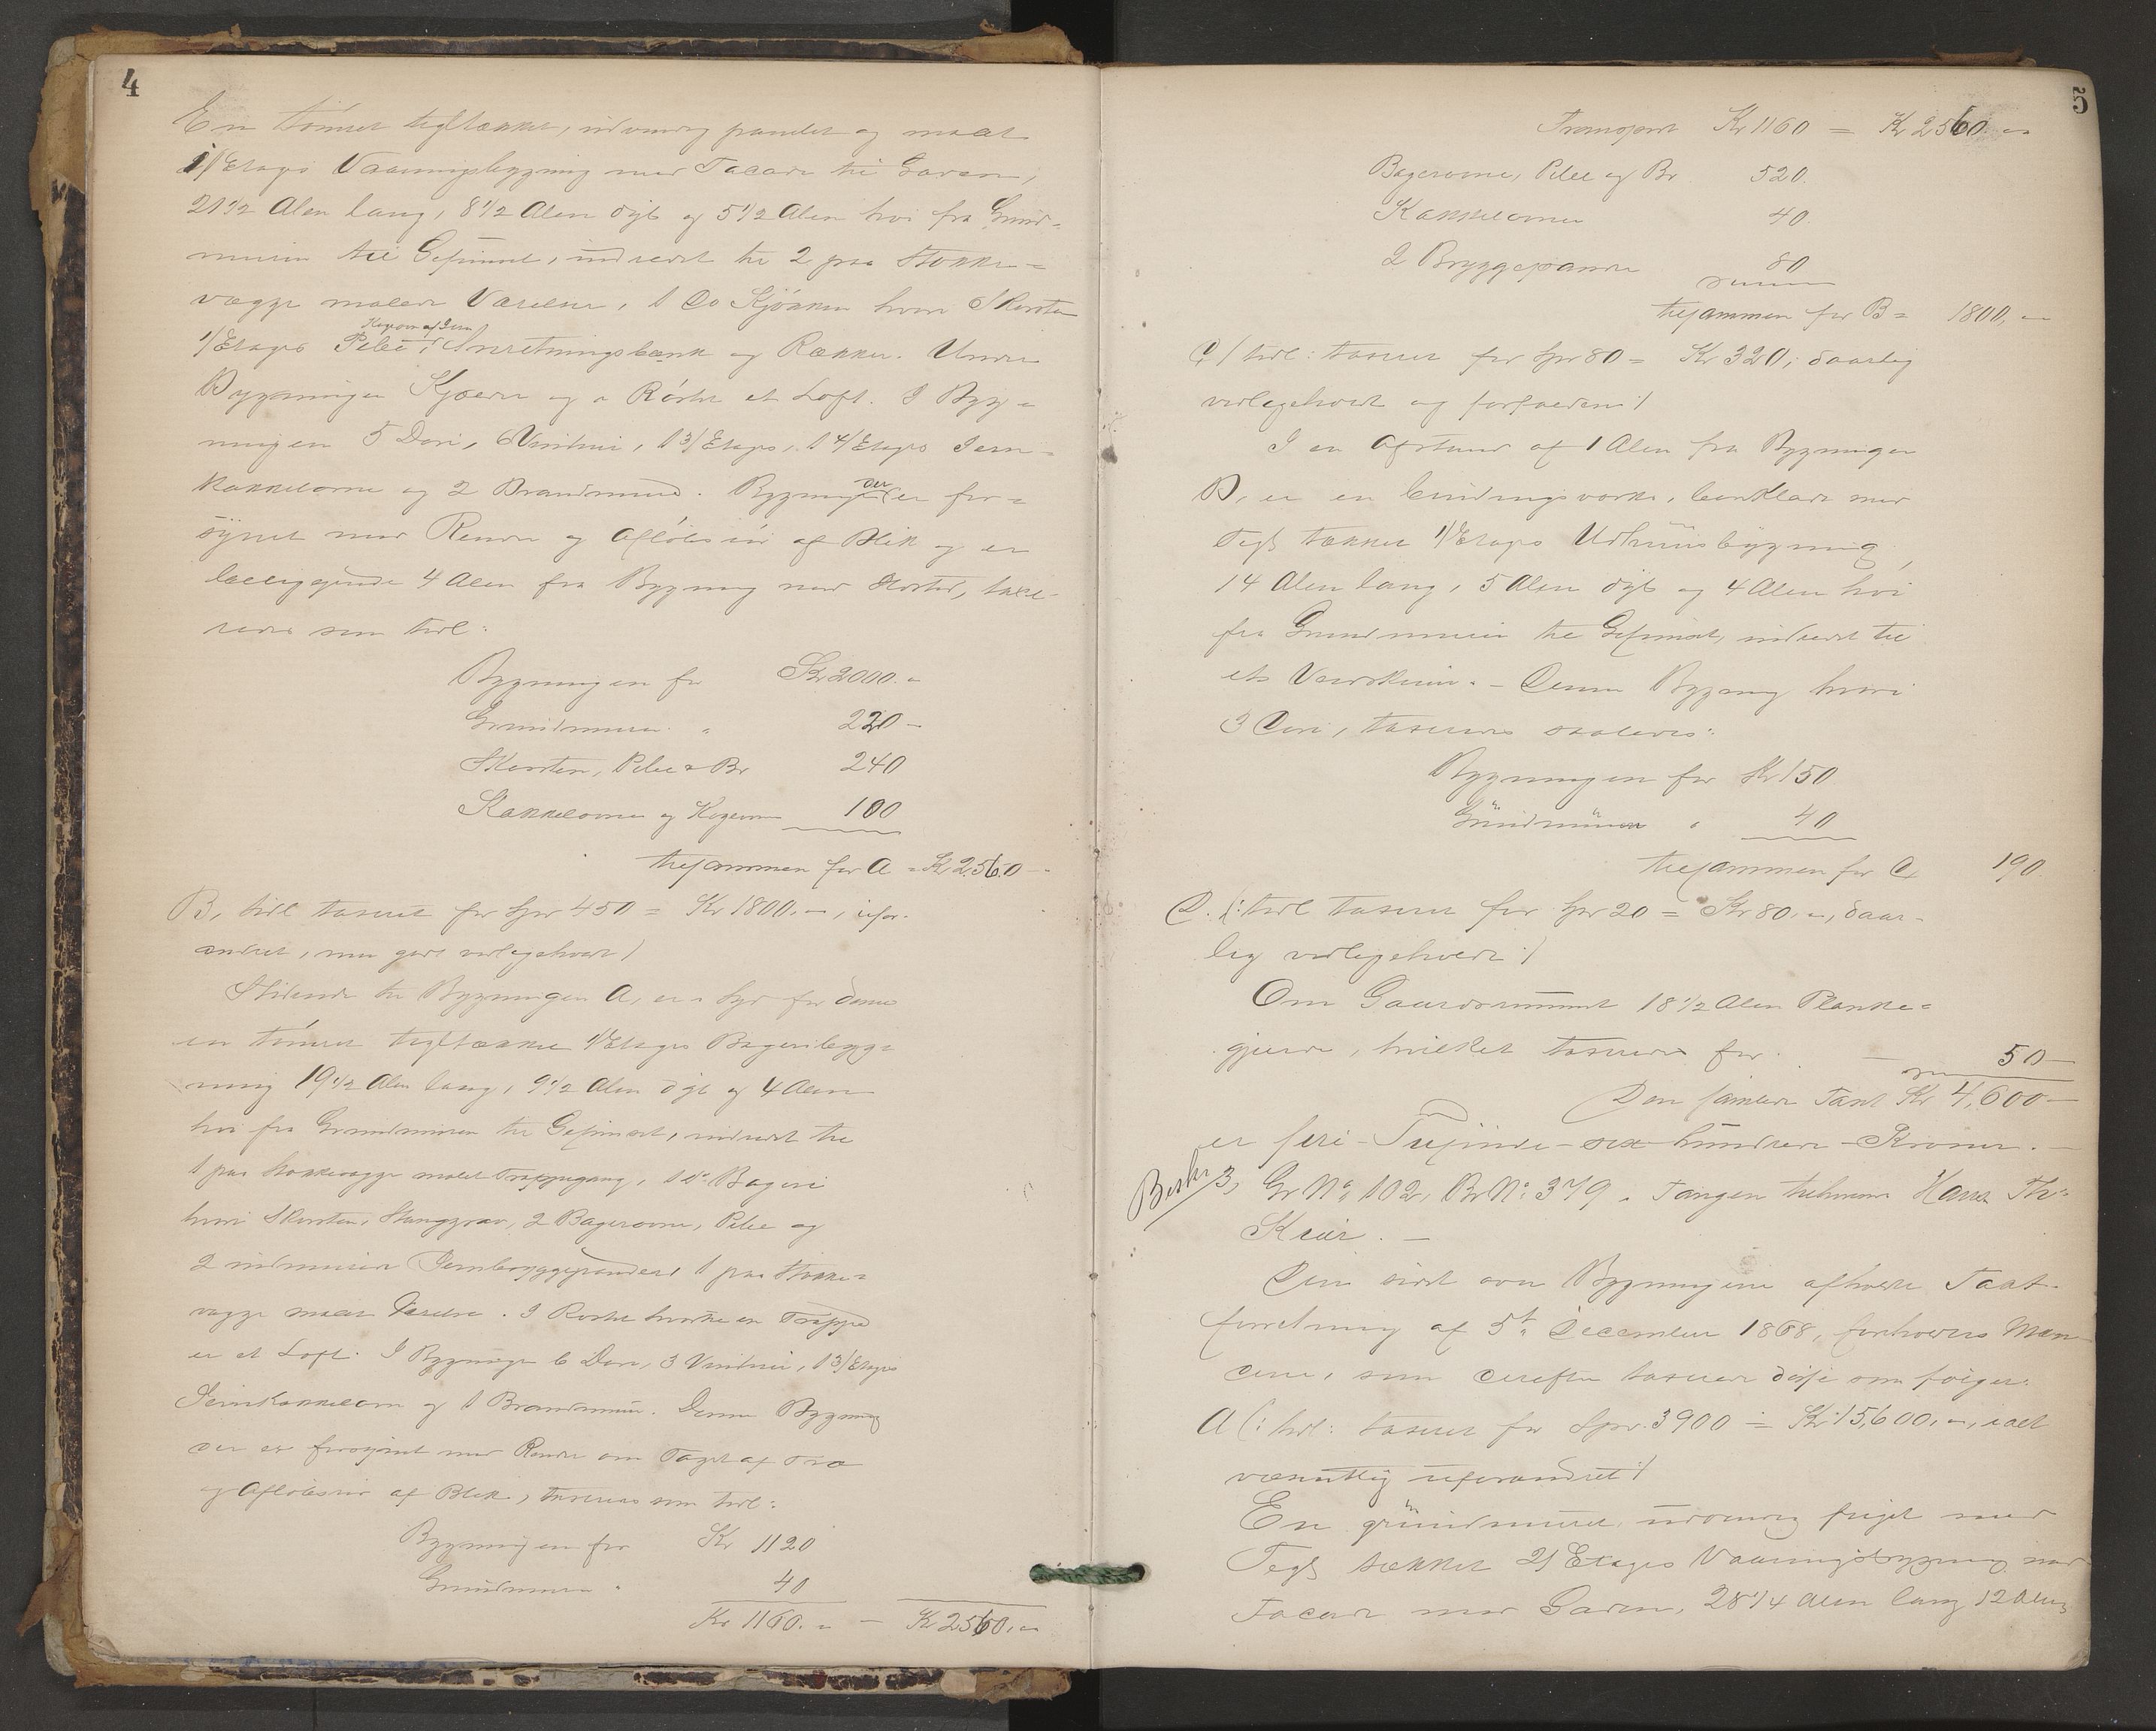 4
En tömret tegltækket, udvendig panelet og malet
1/Etages Vaaningsbygning med Facade til Gaden,
21 1/2 Alen lang, 8 1/2 Alen dyb og 5 1/2 Alen høi fra Grund-
muren til Gesimset, indredet til 2 paa Stokke-
vægge malede Værelser, 1 Do Kjøkken hvori Skorsten
Kogeovn af Jern
1/Etages Pibe, Anretningsbænk og Rækker. Under
Bygningen Kjælder og i Røstet et Loft. I Byg-
ningen 5 Døre, 6 Vinduer, 1 3/Etages, 1 4/Etages Jern-
kakkelovne og 2 Brandmure. Bygningen
der
er for-
synet med Render og Afløbsrør af Blik og er
beliggende 4 Alen fra Bygning mod Nordost, taxe-
redes som hel:
Bygningen for Kr 2000.-
Grundmuren " 220 -
Skorsten, Pibe & Br 240
Kakkelovne og Kogeovn 100
tilsammen for A = Kr 2560 -
B, (hel taxeret for Spr 450 = Kr 1800.-, ufor-
andret, men godt vedligeholdt)
Stødende til Bygningen A, er i Syd for denne
en tömret tegltækket 1/Etages Bageribyg-
ning 19 1/2 Alen lang, 9 1/2 Alen dyb og 4 Alen
høi fra Grundmuren til Gesimset, indredet til
1 paa Stokkevægge malet Trappegang, 1 do Bageri
hvori Skorsten, 2 Bagerovne, Pibe og
2 indmurede Jernbryggepander, 1 paa Stokke-
vægge malet Værelse. I Røstet hvortil en Trappe
er et Loft. I Bygningen 6 Døre, 3 Vinduer, 1 3/Etages
Jernkakkelovn og 1 Brandmur. Denne Bygning
der er forsynet med Render om Taget af Træ
og Afløbsrør af Blik, taxeres som hel:
Bygningen for Kr 1120
Grundmuren " 40
Kr 1160.- - Kr 2560.-
5
Transport Kr 1160 = Kr 2560.-
Bagerovne, Pibe og Br 520.
Kakkelovne 40.
2 Bryggepander 80
tilsammen for B = 1800,-
C, (hel: taxeret for Spr 80 = Kr 320,; daarlig
vedligeholdt og forfalden:)
I en Afstand af 1 Alen fra Bygningen
B, er en bindingsværks, bordklædt med
Tegl tækket 1/Etages Udhuusbygning,
14 Alen lang, 5 Alen dyb og 4 Alen høi
fra Grundmuren til Gesimset, indredet til
et Vedskuur. - Denne Bygning hvori
3 Døre, taxeredes saaledes:
Bygningen for Kr 150
Grundmuren " 40
tilsammen for C, 190.
D. (:hel taxeret for Spr 20 = Kr 80.-, daar-
lig vedligeholdt:)
Om Gaardsrummet 18 1/2 Alen Planke-
gjerde, hvilket taxeredes for - 50 -
Den samlede Taxt Kr 4,600 -
er fire - Tusinde - sex hundrede - Kroner. -
Besk 3, Gr No 102, Br No 379, Tangen tilhører Hans Th.
Kiær. -
Den sidst over Bygningerne afholdte Taxt-
forretning af 5te December 1868, foreholdtes Mæn-
dene, som derefter taxerede disse som følger:
A (: hel: taxeret for Spr. 3900 = Kr 15,600.-, i alt
væsentlig uforandret:)
En grundmuret, udvendig pudset med
Tegl tækket 2/Etages Vaaningsbygning med
Facade mod Gaden, 28 1/4 Alen lang 12 Alen